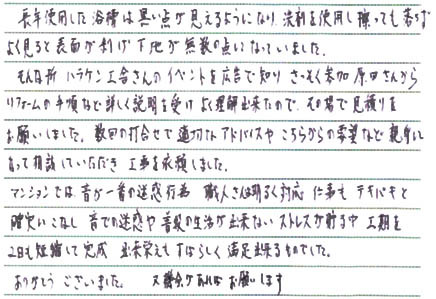 長年使用した浴槽は黒い点が見えるようになり、洗剤を使用し擦っても落ちず
よく見ると表面が剥げ下地が無数の点になっていました。
そんな折 ハラケン工合さんのイベントを広告で知り さっそく参加 原田さんから
リフォームの手順など詳しく説明を受け よく理解出来たので、その場で見積りを
お願いしました。数回の打合せで適切なアドバイスや こちらからの要望など親身に
なって相談していただき 工事を依頼しました。
マンションでは音が一番の迷惑行為 職人さんは明るく対応 仕事も テキパキと
確実にこなし 音での迷惑や 普段の生活が出来ない ストレスが貯る中 工期を
2日も短縮して完成 出来栄えもすばらしく 満足出来るものでした。
ありがとうございました。 又機会があれば お願いします